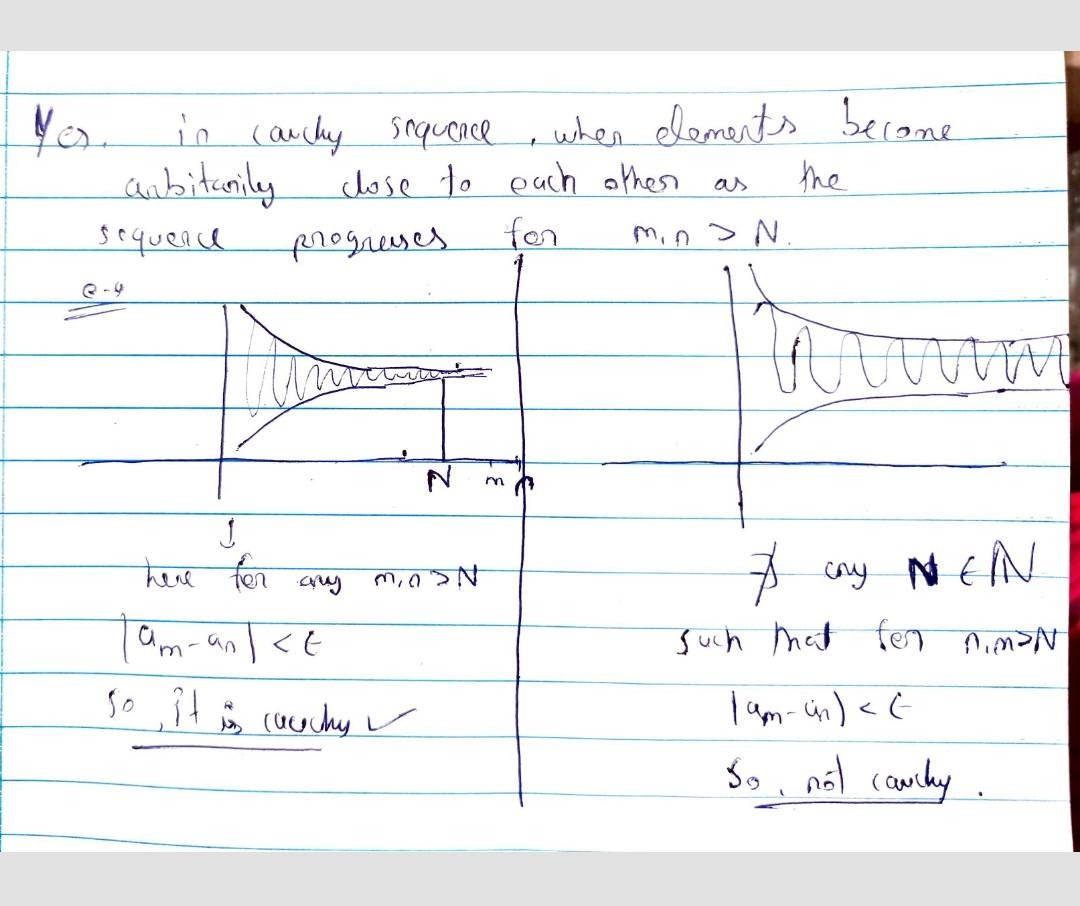 Yes. in cauchy sequence, when elements become
arbitarily close to each other as the
sequence progresses for m,n > N.
e-g
N m n
here for any m,n>N
|am-an| < ϵ
so, it is cauchy ✓
∄ any N ∈ ℕ
such that for n,m>N
|am-an| < ϵ
So, not cauchy.